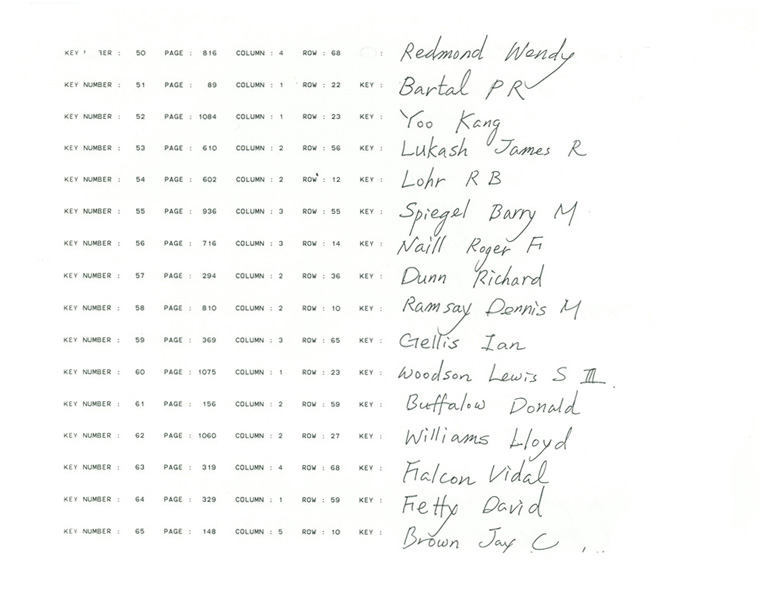 KEY NUMBER : 50 PAGE : 816 COLUMN : 4 ROW : 68 : Redmond Wendy
KEY NUMBER : 51 PAGE : 89 COLUMN : 1 ROW : 22 KEY : Bartal P R
KEY NUMBER : 52 PAGE : 1084 COLUMN : 1 ROW : 23 KEY : Yoo Kang
KEY NUMBER : 53 PAGE : 610 COLUMN : 2 ROW : 56 KEY : Lukash James R
KEY NUMBER : 54 PAGE : 602 COLUMN : 2 ROW : 12 KEY : Lohr R B
KEY NUMBER : 55 PAGE : 936 COLUMN : 3 ROW : 55 KEY : Spiegel Barry M
KEY NUMBER : 56 PAGE : 716 COLUMN : 3 ROW : 14 KEY : Naill Roger F
KEY NUMBER : 57 PAGE : 294 COLUMN : 2 ROW : 36 KEY : Dunn Richard
KEY NUMBER : 58 PAGE : 810 COLUMN : 2 ROW : 10 KEY : Ramsay Dennis M
KEY NUMBER : 59 PAGE : 369 COLUMN : 3 ROW : 65 KEY : Gellis Ian
KEY NUMBER : 60 PAGE : 1075 COLUMN : 1 ROW : 23 KEY : Woodson Lewis S III
KEY NUMBER : 61 PAGE : 156 COLUMN : 2 ROW : 59 KEY : Buffalow Donald
KEY NUMBER : 62 PAGE : 1060 COLUMN : 2 ROW : 27 KEY : Williams Lloyd
KEY NUMBER : 63 PAGE : 319 COLUMN : 4 ROW : 68 KEY : Falcon Vidal
KEY NUMBER : 64 PAGE : 329 COLUMN : 1 ROW : 59 KEY : Fetty David
KEY NUMBER : 65 PAGE : 148 COLUMN : 5 ROW : 10 KEY : Brown Jay C